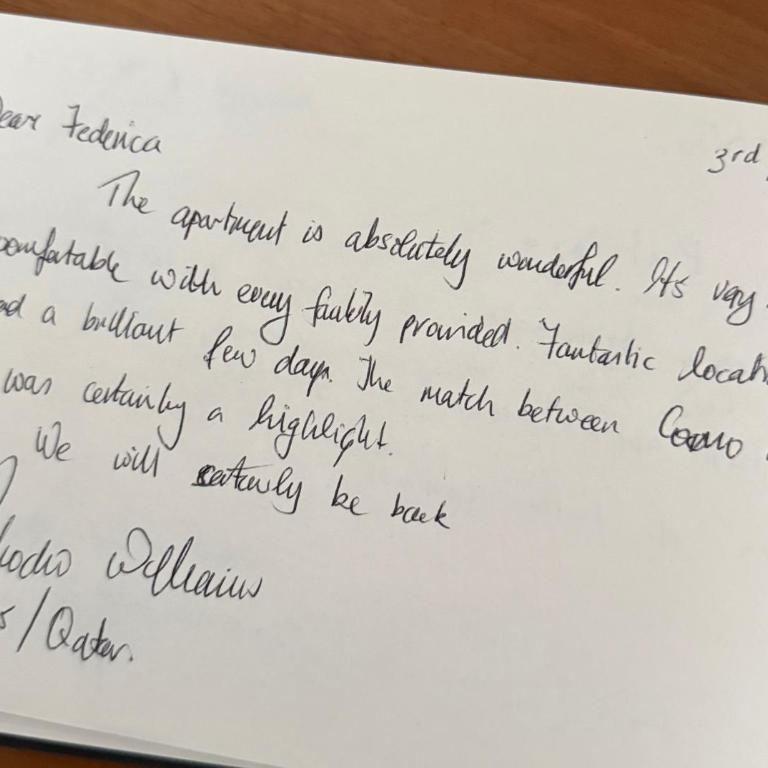 ear Federica
3rd
The apartment is absolutely wonderful. Its very
comfatable with every facility provided. Fantastic locati
ad a brilliant few days. The match between Como
was certainly a highlight.
We will certainly be back
Williams
/Qatar.